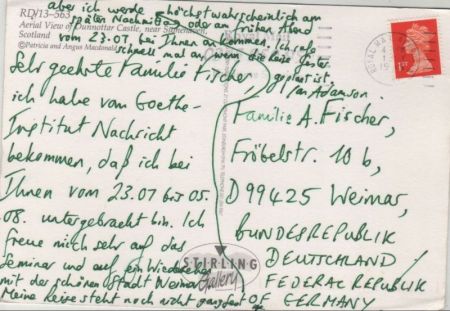 aber ich werde höchstwahrscheinlich am
späten Nachmittag oder am frühen Abend
vom 23.07 bei Ihnen ankommen. Ich rufe
schnell mal an, wenn die Reise fester
geplant ist.
Ian Adamson.
RD/13-563
Aerial View of Dunnottar Castle, near Stonehaven,
Scotland
©Patricia and Angus Macdonald
Sehr geehrte Familie Fischer,
ich habe vom Goethe-
Institut Nachricht
bekommen, daß ich bei
Ihnen vom 23.07 bis 05.
08. untergebracht bin. Ich
freue mich sehr auf das
Seminar und auf ein Wiedersehen
mit der schönen Stadt Weimar.
Meine Reise steht noch nicht ganz fest
Familie A. Fischer,
Fröbelstr. 10 b,
D99425 Weimar,
BUNDESREPUBLIK
DEUTSCHLAND/
FEDERAL REPUBLIK
OF GERMANY
STIRLING
Gallery
1st